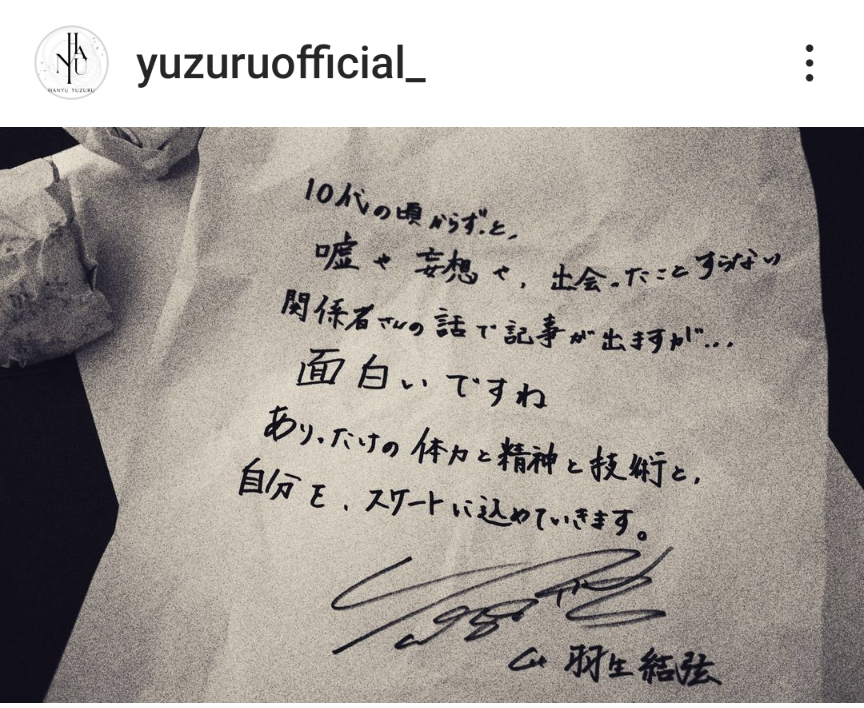 HANYU
HANYU YUZURU
yuzuruofficial_
10代の頃からずっと、
嘘や妄想や、出会ったことすらない
関係者さんの話で記事が出ますが…
面白いですね
ありったけの体力と精神と技術と、
自分を、スケートに込めていきます。
羽生結弦